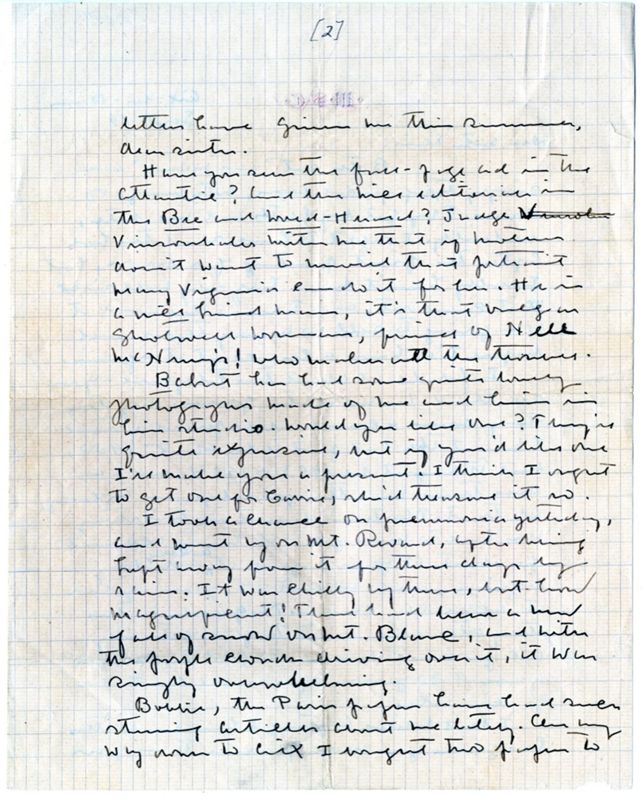 [2]
letters have given me this summer,
dear sister.
Have you seen the full-page ad in the
Atlantic? And the nice editorial in
the Bee and World-Herald? Judge Vinsonhaler
Vinsonhaler writes me that if mother
don't want to unveil that portrait
Mary Virginia can do it for her. He is
a nice kind man, it's that vulgar
Shotwell woman, friend of Nell
McNeny's! who makes all the trouble.
Bakst has had some quite lovely
photographs made of me and him in
his studio. Would you like one? They're
quite expensive, but if you'd like one
I'll make you a present. I think I ought
to get one for Carrie, she'd treasure it so.
I took a chance on pneumonia yesterday,
and went up on Mt. Revard, after being
kept away from it for three days by
rain. It was chilly up there, but how
magnificent! There had been a new
fall of snow on Mt. Blanc, and with
the purple clouds driving over it, it was
simply overwhelming.
Bobbie, the Paris papers have had such
stunning articles about me lately. On my
way down to Aix I bought two papers to